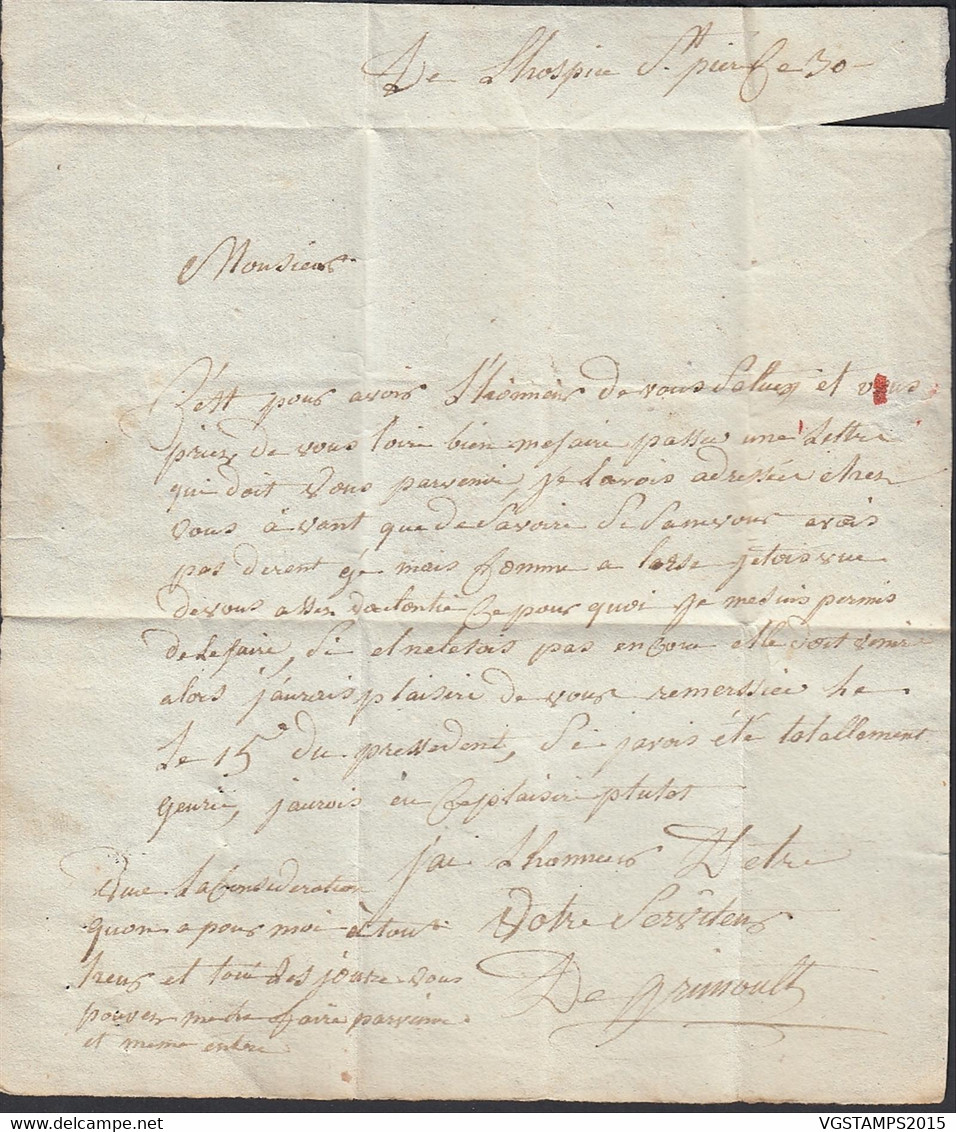 De Lhospice St. pier Ce 30
Monsieur
C'ett pour avoir L'honneur de vous Saluer et vous
prier de vous loire bien mefaire passer une Lettre
qui doit vous parvenir, je lavois adressée chez
vous à vant que de Savoire Si
pas mais Comme a lorse jetois vue
de vous assez Ce pour quoi je me suis permis
de le faire, Si elneletois pas en Core elle doit venir
alors j'aurois plaisire de vous remerssier
Le 15e du pressedent, Si javois été totallement
gueri, jaurois eu Ce plaisire plutot
j'ai Lhonneur D'etre
Votre Serviteur
De grimoult
Vue La Consideration
quon a pour moi à tout
heur et tout des jours vous
pouvez faire parvenir
et meme entre
VGSTAMPS2015